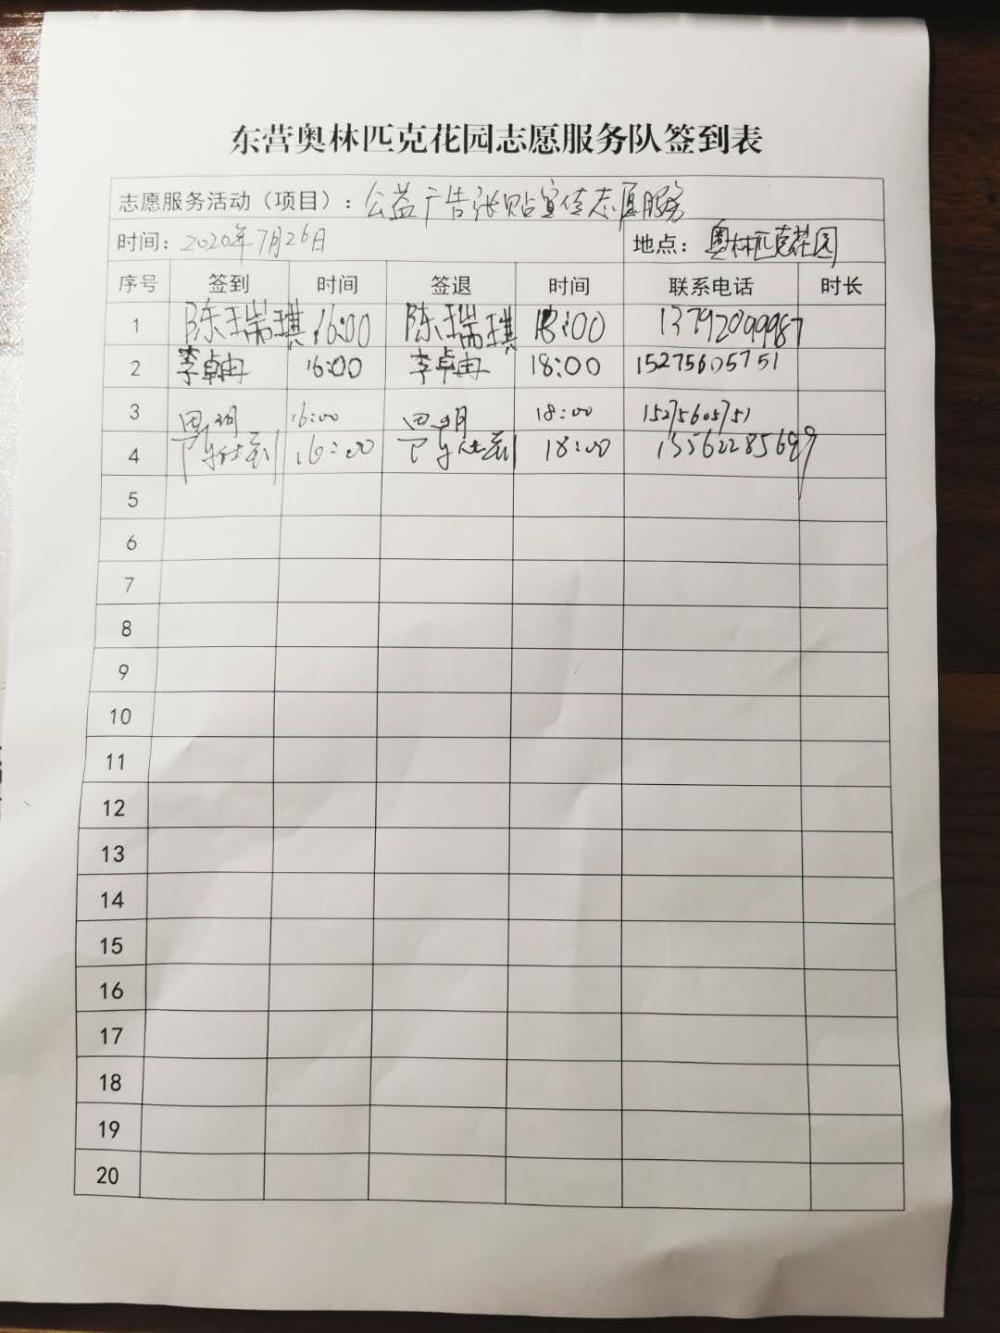 东营奥林匹克花园志愿服务队签到表
志愿服务活动（项目）：公益广告张贴宣传志愿服务
时间：2020年7月26日 地点：奥林匹克花园
序号 签到 时间 签退 时间 联系电话 时长
1 陈瑞琪 16:00 陈瑞琪 18:00 13792099987
2 李卓冉 16:00 李卓冉 18:00 15275605751
3 16:00 18:00 15275605751
4 16:00 18:00
5
6
7
8
9
10
11
12
13
14
15
16
17
18
19
20